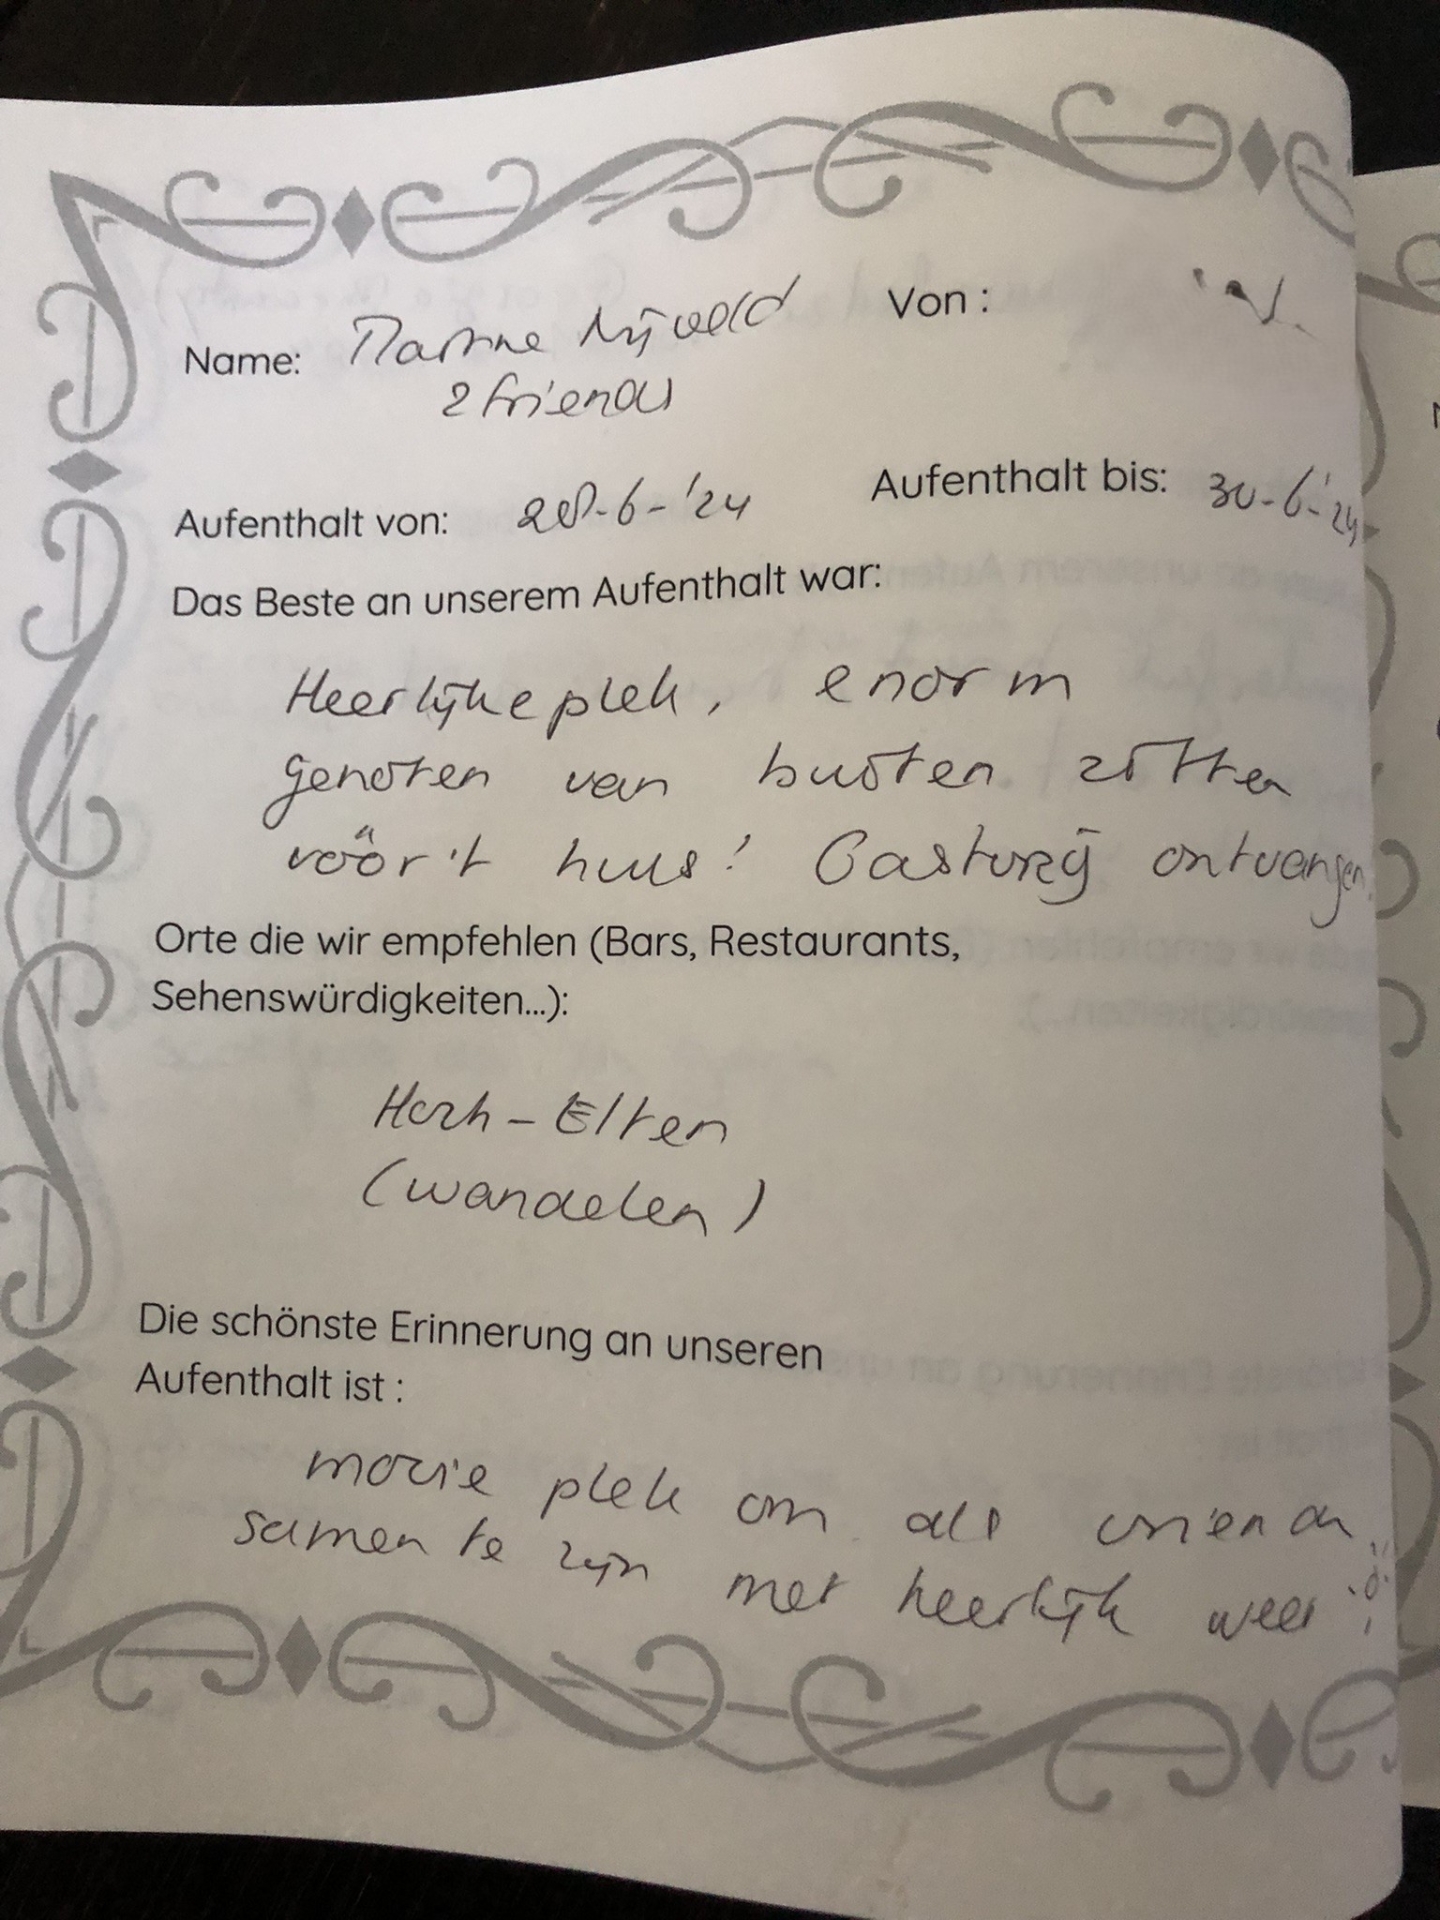 Name: Martine Nijveld Von :
2 friends
Aufenthalt von: 28-6-'24 Aufenthalt bis: 30-6-'24
Das Beste an unserem Aufenthalt war:
Heerlijke plek, enorm
genoten van buiten zitten
vóór 't huis! Gastvrij ontvangen
Orte die wir empfehlen (Bars, Restaurants,
Sehenswürdigkeiten...):
Hoch-Elten
(wandelen)
Die schönste Erinnerung an unseren
Aufenthalt ist :
mooie plek om als vrienden
samen te zijn met heerlijk weer